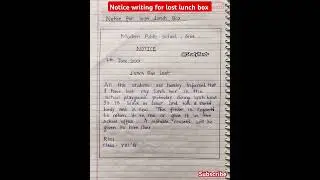 Notice writing for lost lunch box
Notice For lost Lunch Box
Modern Public School, Agra
NOTICE
@StudyBuds
Lunch Box Lost
All the students are hereby informed that
I have lost my lunch box in the
school playground yesterday during lunch break
It is in colour and has a
body and is new. The finder is requested
to return it to me or give it in the
school office. A suitable reward will be
given to him/her
Class - VIII 'B'
Subscribe